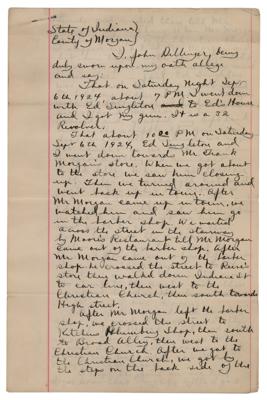 State of Indiana }
County of Morgan }
I, John Dillinger, being
duly sworn upon my oath allege
and say:
That on Saturday Night Sep
6th 1924, about 7 PM I went down
with Ed Singleton to Ed's House
and I got my gun. It is a 32
Revolver.
That about 10:00 PM on Saturday
Sep 6th 1924, Ed Singleton and
I went down toward Mr Frank
Morgan's store. When we got about
to the store we saw him closing
up. Then we turned around and
went back up in town. After
Mr Morgan came up in town, we
watched him and saw him go
in the barber shop. We waited
across the street in the stairway
by Moore's Restaurant till Mr Morgan
came out of the barber shop. After
Mr Morgan came out of the barber
shop he crossed the street to
store then walked down Indiana St
to car line, then west to the
Christian Church, then south towards
High street.
After Mr Morgan left the barber
shop, we crossed the street to
Plumbing Shop, then south
to Broad Alley, then west to the
Christian Church. After we got to
the Christian Church, we got by
the steps on the back side of the